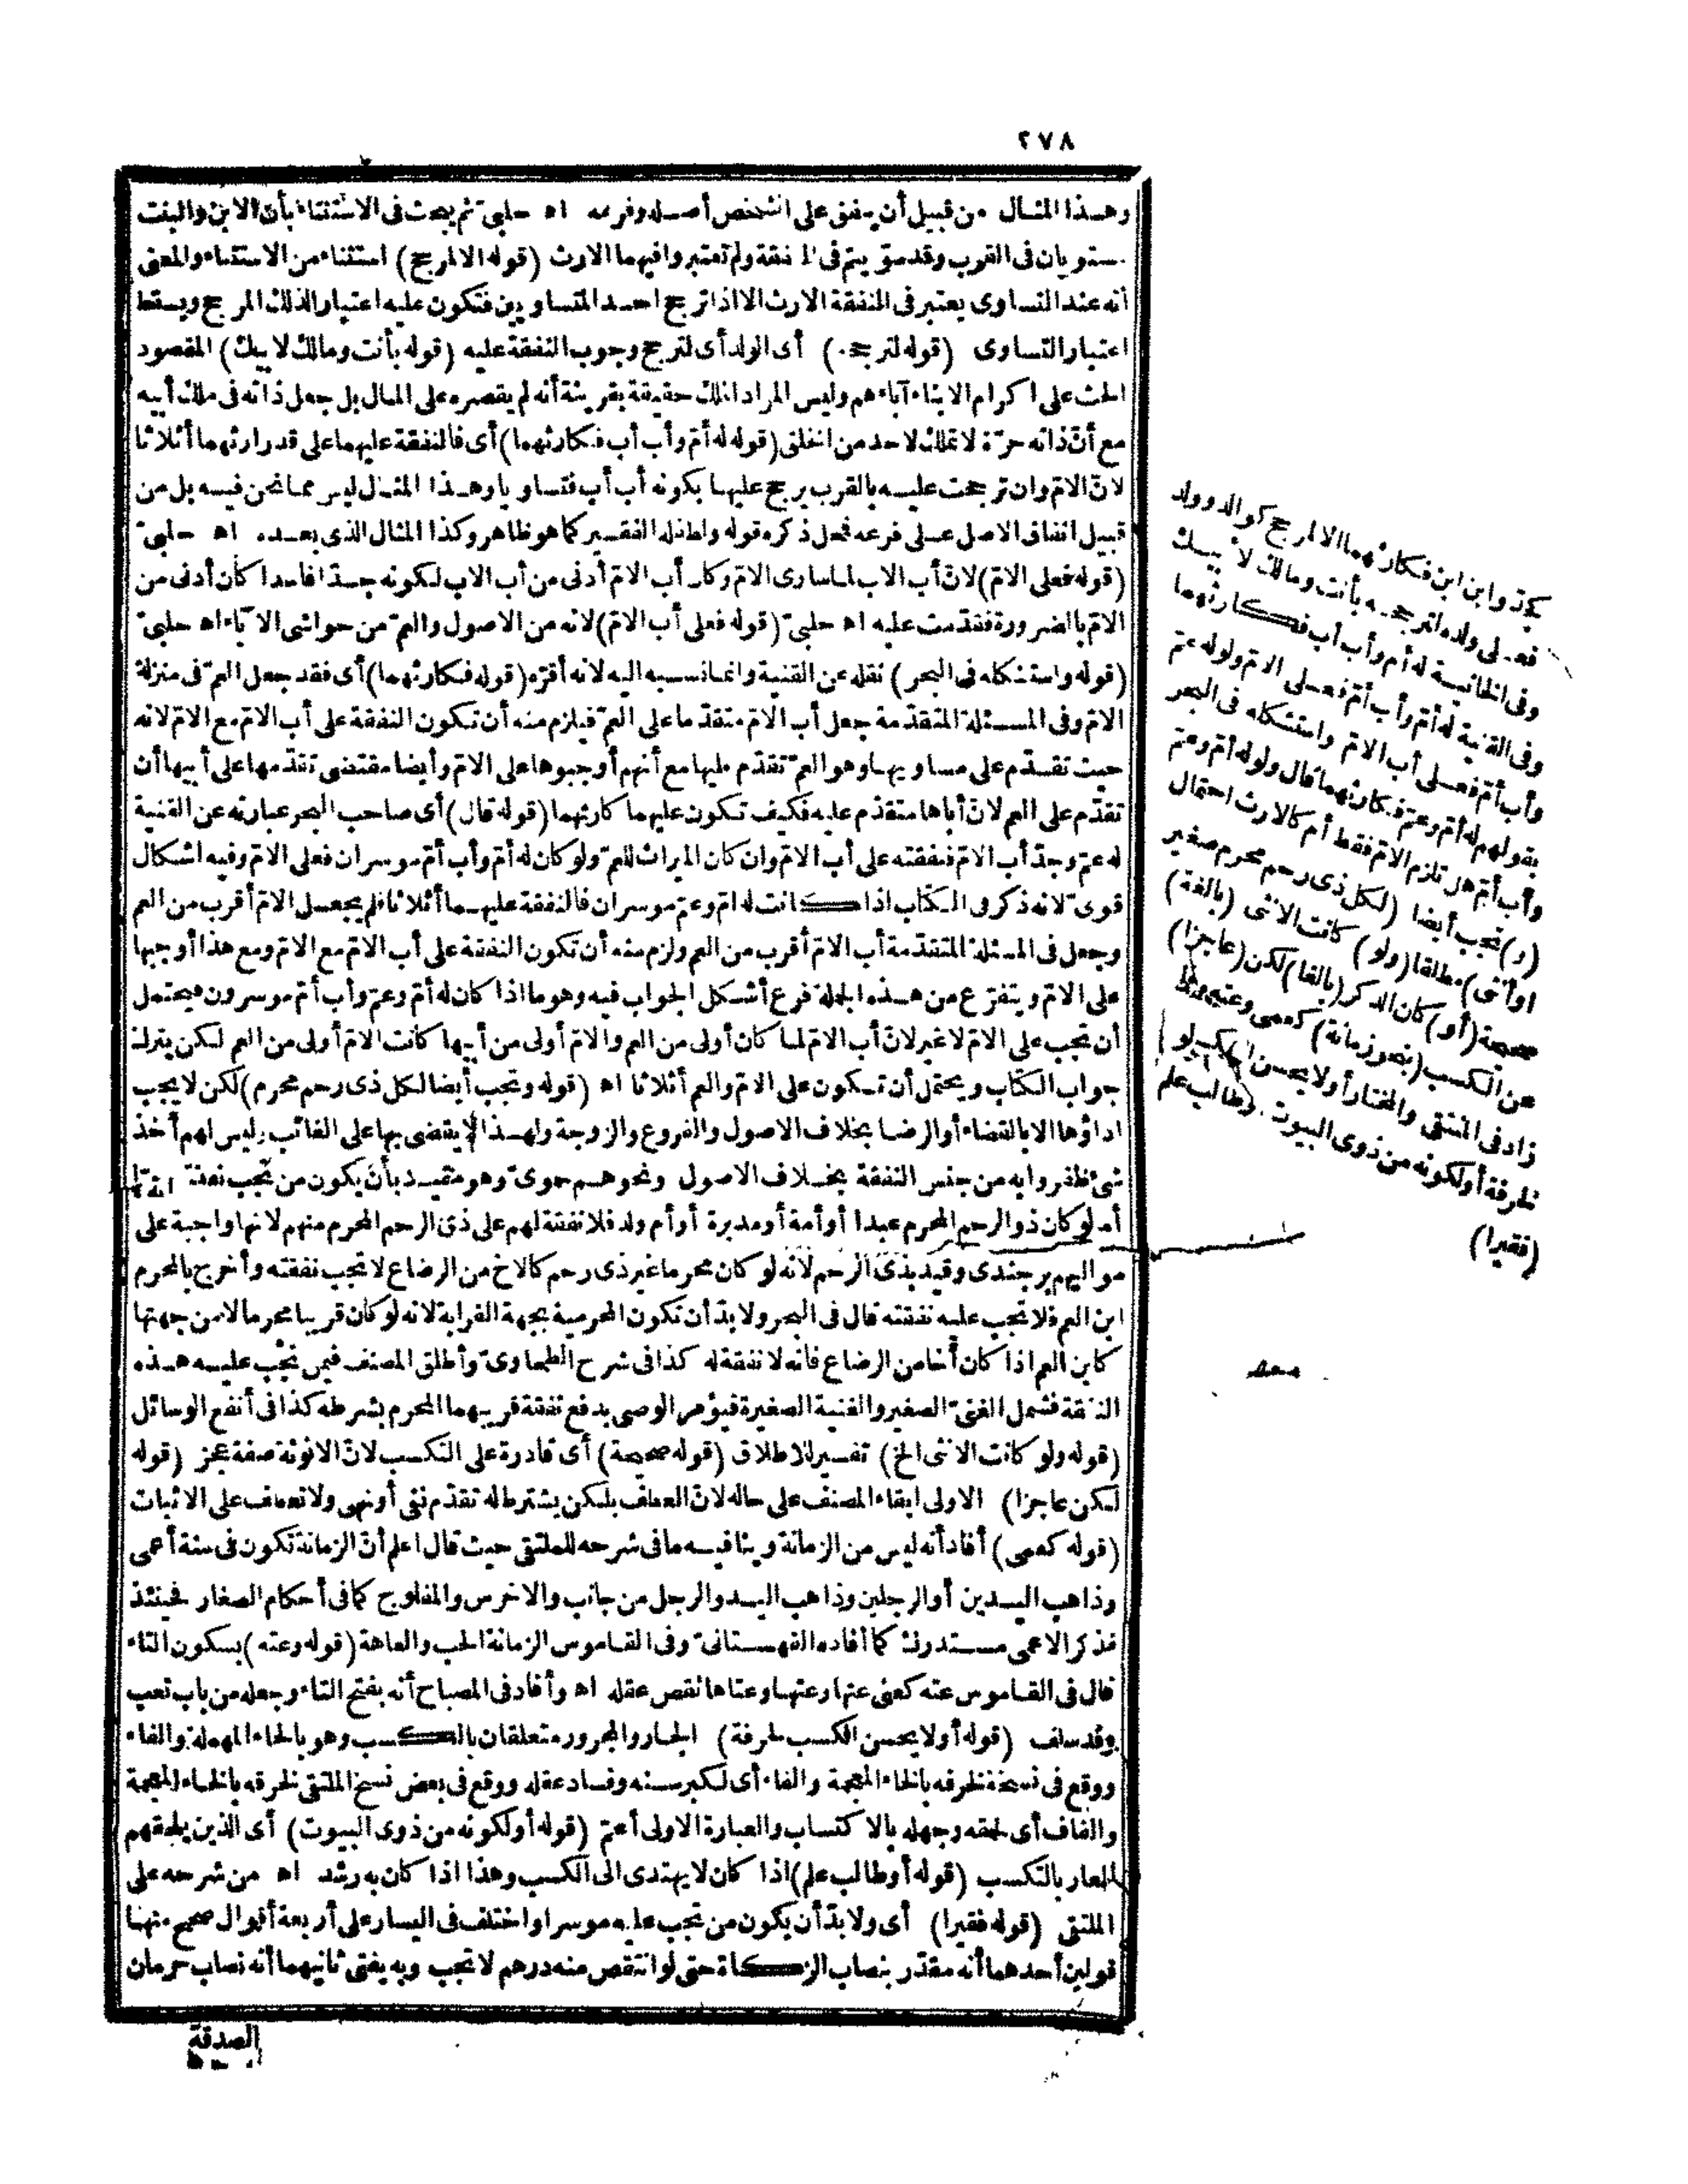 ٢٧٨
وهذا المثال من قبيل أن ينفق على الشخص أصله وفرعه اه حلبىّ ثم يبحث فى الاستثناء بأن الابن والبنت
يستويان فى القرب وقد سوّيتم فى النفقة ولم تعتبروا فيهما الارث (قوله الا لمرجح) استثناء من الاستثناء والمعنى
أنه عند التساوى يعتبر فى النفقة الارث الا اذا ترجح احد المتساويين فتكون عليه اعتبارا لذلك المرجح ويسقط
اعتبار التساوى (قوله لترجحه) أى الولد أى لترجح وجوب النفقة عليه (قوله بأنت ومالك لابيك) المقصود
الحث على اكرام الابناء آباءهم وليس المراد الملك حقيقة بقرينة أنه لم يقصره على المال بل جعل ذاته فى ملك أبيه
مع أنّ ذاته حرّة لا تملك لاحد من الخلق (قوله له أمّ وأب أب فكارثهما) أى فالنفقة عليهما على قدر ارثهما أثلاثا
لانّ الامّ وان ترجحت عليه بالقرب يرجح عليها بكونه أب أب فتساويا وهذا المثال ليس مما نحن فيه بل من
قبيل انفاق الاصل على فرعه فمحل ذكره قوله ولطفله الفقير كما هو ظاهر وكذا المثال الذى بعده اه حلبىّ
(قوله فعلى الامّ) لانّ أب الاب لما ساوى الامّ وكان أب الامّ أدنى من أب الاب لكونه جدّا فاسدا كان أدنى من
الامّ بالضرورة فقدمت عليه اه حلبىّ (قوله فعلى أب الامّ) لانه من الاصول والعمّ من حواشى الآباء اه حلبىّ
(قوله واستشكله فى البحر) نقله عن القنية وانما نسبه اليه لانه أقرّه (قوله فكارثهما) أى فقد جعل العمّ فى منزلة
الامّ وفى المسئلة المتقدّمة جعل أب الامّ متقدّما على العمّ فيلزم منه أن تكون النفقة على أب الامّ مع الامّ لانه
حيث تقدّم على مساويها وهو العمّ تقدّم عليها مع أنهم أوجبوها على الامّ وأيضا مقتضى تقدّمها على أبيها أن
تقدّم على العم لانّ أباها متقدّم عليه فكيف تكون عليهما كارثهما (قوله قال) أى صاحب البحر عبارته عن القنية
له عمّ وجدّ أب الامّ فنفقته على أب الامّ وان كان الميراث للعمّ ولو كان له أمّ وأب أمّ موسران فعلى الامّ وفيه اشكال
قوىّ لانه ذكر فى الكتاب اذا كانت له امّ وعمّ موسران فالنفقة عليهما أثلاثا فلم يجعل الامّ أقرب من العم
وجعل فى المسئلة المتقدّمة أب الامّ أقرب من العم ولزم منه أن تكون النفقة على أب الامّ مع الامّ ومع هذا أوجبها
على الامّ ويتفرّع من هذه الجملة فرع أشكل الجواب فيه وهو ما اذا كان له أمّ وعمّ وأب أمّ موسرون فيحتمل
أن تجب على الامّ لا غير لانّ أب الامّ لما كان أولى من العم والامّ أولى من أبيها كانت الامّ أولى من العم لكن يترك
جواب الكتاب ويحتمل أن تكون على الامّ والعم أثلاثا اه (قوله وتجب أيضا لكل ذى رحم محرم) لكن لا يجب
اداؤها الا بالقضاء أو الرضا بخلاف الاصول والفروع والزوجة ولهذا لا يقضى بها على الغائب وليس لهم أخذ
شئ ظفروا به من جنس النفقة بخلاف الاصول ونحوهم حموىّ وهو مقيد بأن يكون من تجب نفقته
أما لو كان ذو الرحم المحرم عبدا أو أمة أو مدبرة أو أم ولد فلا نفقة لهم على ذى الرحم المحرم منهم لانها واجبة على
مواليهم برجندى وقيد بذى الرحم لانه لو كان محرما غير ذى رحم كالاخ من الرضاع لا تجب نفقته وأخرج بالمحرم
ابن العم فلا تجب عليه نفقته قال فى البحر ولا بدّ أن تكون المحرمية بجهة القرابة لانه لو كان قريبا محرما لا من جهتها
كابن العم اذا كان أخا من الرضاع فانه لا نفقة له كذا فى شرح الطحاوىّ وأطلق المصنف فيمن تجب عليه هذه
النفقة فشمل الغنىّ الصغير والغنية الصغيرة فيؤمر الوصى بدفع نفقة قريبهما المحرم بشرطه كذا فى أنفع الوسائل
(قوله ولو كانت الانثى الخ) تفسير للاطلاق (قوله صحيحة) أى قادرة على التكسب لانّ الانوثة صفة عجز (قوله
لكن عاجزا) الاولى ابقاء المصنف على حاله لانّ العطف بلكن يشترط له تقدّم نفى أو نهى ولا تعطف على الاثبات
(قوله كعمى) أفاد أنه ليس من الزمانة وينافيه ما فى شرحه للملتقى حيث قال اعلم أنّ الزمانة تكون فى ستة أعمى
وذاهب اليدين أو الرجلين وذاهب اليد والرجل من جانب والاخرس والمفلوج كما فى أحكام الصغار فحينئذ
فذكر الاعمى مستدرك كما أفاده القهستانىّ وفى القاموس الزمانة الحب والعاهة (قوله وعته) بسكون التاء
قال فى القاموس عته كعنى عتها وعتها وعتاها نقص عقله اه وأفاد فى المصباح أنه بفتح التاء وجعله من باب تعب
وقد سلف (قوله أو لا يحسن الكسب لحرفة) الجار والمجرور متعلقان بالكسب وهو بالحاء المهملة والفاء
ووقع فى نسخة لخرفه بالخاء المعجمة والفاء أى لكبر سنه وفساد عقله ووقع فى بعض نسخ الملتقى لخرقه بالخاء المعجمة
والقاف أى لحمقه وجهله بالاكتساب والعبارة الاولى أعمّ (قوله أو لكونه من ذوى البيوت) أى الذين يلحقهم
العار بالتكسب (قوله أو طالب علم) اذا كان لا يهتدى الى الكسب وهذا اذا كان به رشد اه من شرحه على
الملتقى (قوله فقيرا) أى ولا بدّ أن يكون من تجب عليه موسرا واختلف فى اليسار على أربعة أقوال صحح منها
قولين أحدهما أنه مقدّر بنصاب الزكاة حتى لو انتقص منه درهم لا تجب وبه يفتى ثانيهما أنه نصاب حرمان
الصدقة
كجدّ وابن ابن فكارثهما الا لمرجح كوالد وولد
فعلى ولده لترجحه بأنت ومالك لابيك
وفى الخانية له أم وأب أب فكارثهما
وفى القنية له أمّ وأب أمّ فعلى الامّ ولو له عمّ
وأب أمّ فعلى أب الامّ واستشكله فى البحر
بقولهم له أمّ وعمّ فكارثهما قال ولو له أمّ وعمّ
وأب أمّ هل تلزم الامّ فقط أم كالارث احتمال
(و) تجب أيضا (لكل ذى رحم محرم صغير
او أنثى) مطلقا (ولو) كانت الانثى (بالغة)
صحيحة (أو) كان الذكر (بالغا) لكن (عاجزا)
عن الكسب (بنحو زمانة) كعمى وعته وفلج
زاد فى الملتقى والمختار أو لا يحسن الكسب
لحرفة أو لكونه من ذوى البيوت أو طالب علم
(فقيرا)